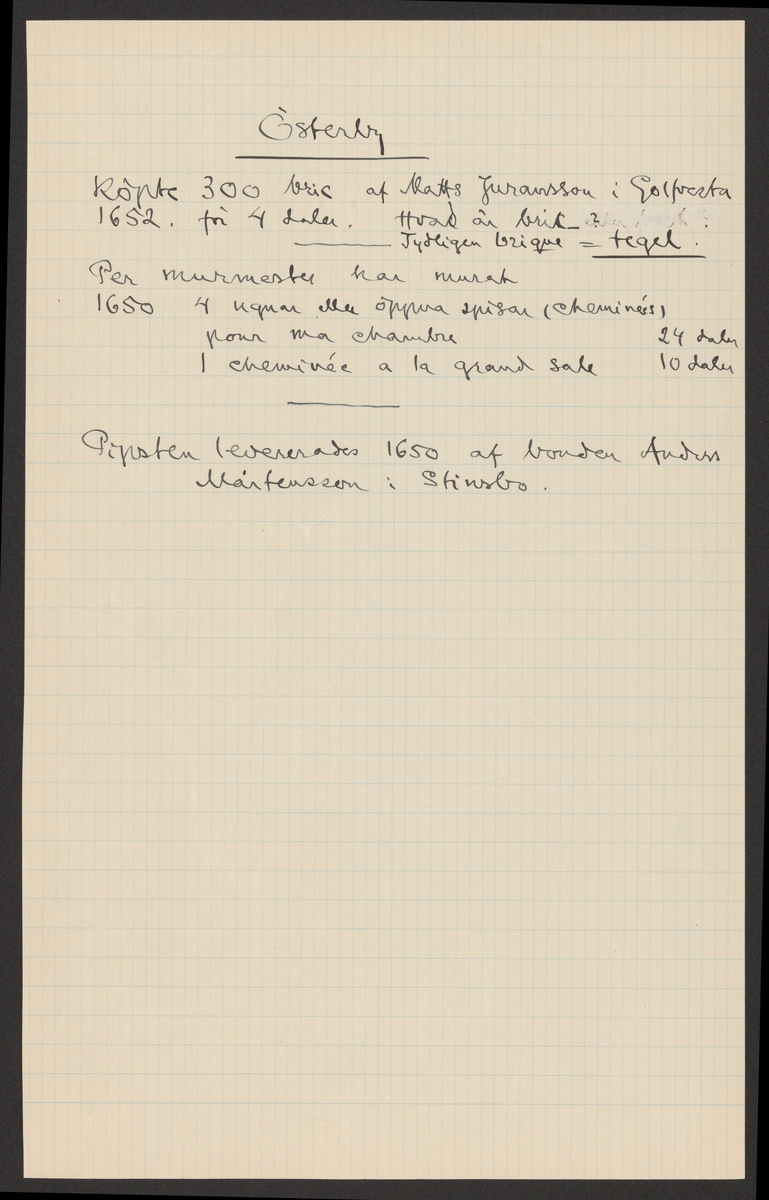 Österby
Köpte 300 bric af Matts Juransson i Golfvasta
1652. för 4 daler. Hvad är brik ?
Tydligen brique = tegel.
Per murmester har murat
1650 4 ugnar eller öppna spisar (cheminées)
pour ma chambre 24 daler
1 cheminée a la grand sale 10 daler
Pipsten levererades 1650 af bonden Anders
Mårtensson i Stinsbo.